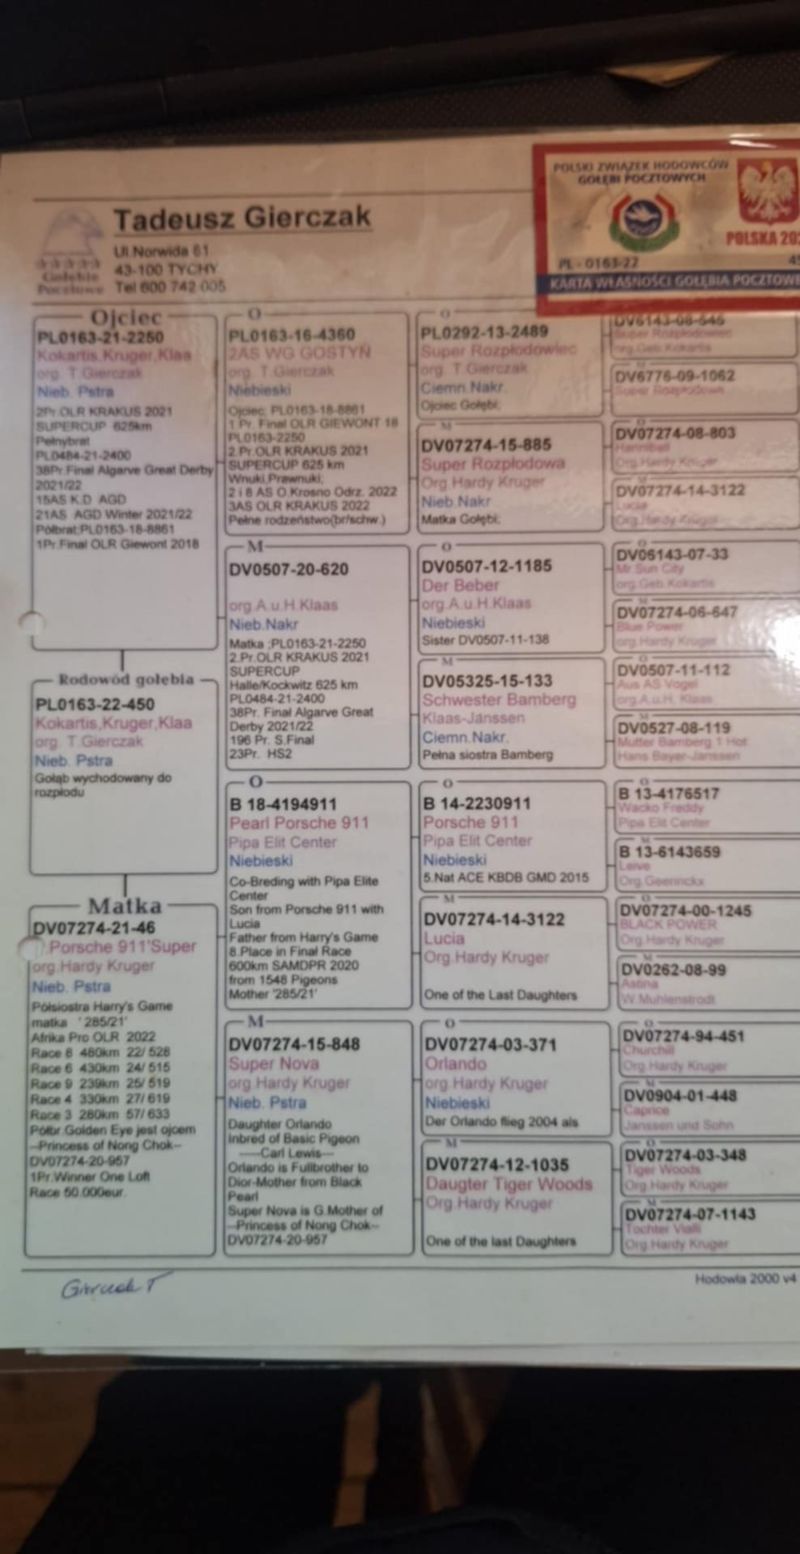 POLSKI ZWIĄZEK HODOWCÓW
GOŁĘBI POCZTOWYCH
POLSKA
PL - 0163-22
KARTA WŁASNOŚCI GOŁĘBIA
Tadeusz Gierczak
Ul.Norwida 61
43-100 TYCHY
Tel 600 742 005
Gołębie
Pocztowe
Ojciec
PL0163-21-2250
Kokartis,Kruger,Klaa
org. T.Gierczak
Nieb. Pstra
2Pr.OLR KRAKUS 2021
SUPERCUP 625km
Pełnybrat
PL0484-21-2400
38Pr.Final Algarve Great Derby
2021/22
15AS K.D AGD
21AS AGD Winter 2021/22
Półbrat:PL0163-18-8861
1Pr.Final OLR Giewont 2018
Rodowód gołębia
PL0163-22-450
Kokartis,Kruger,Klaa
org. T.Gierczak
Nieb. Pstra
Gołąb wychodowany do
rozpłodu
Matka
DV07274-21-46
Porsche 911'Super
org.Hardy Kruger
Nieb. Pstra
Półsiostra Harry's Game
matka ' 285/21'
Afrika Pro OLR 2022
Race 8 480km 22/ 528
Race 6 430km 24/ 515
Race 9 239km 25/ 519
Race 4 330km 27/ 619
Race 3 280km 57/ 633
Półbr.Golden Eye jest ojcem
--Princess of Nong Chok--
DV07274-20-957
1Pr.Winner One Loft
Race 50.000eur.
O
PL0163-16-4360
2AS WG GOSTYŃ
org. T.Gierczak
Niebieski
Ojciec: PL0163-18-8861
1 Pr. Final OLR GIEWONT 18
PL0163-2250
2.Pr.OLR KRAKUS 2021
SUPERCUP 625 km
Wnuki,Prawnuki;
2 i 8 AS O Krosno Odrz. 2022
3AS OLR KRAKUS 2022
Pełne rodzeństwo(br/schw.)
M
DV0507-20-620
org.A.u.H.Klaas
Nieb.Nakr
Matka ;PL0163-21-2250
2.Pr.OLR KRAKUS 2021
SUPERCUP
Halle/Kockwitz 625 km
PL0484-21-2400
38Pr. Final Algarve Great
Derby 2021/22
196 Pr. S.Final
23Pr. HS2
O
B 18-4194911
Pearl Porsche 911
Pipa Elit Center
Niebieski
Co-Breding with Pipa Elite
Center
Son from Porsche 911 with
Lucia
Father from Harry's Game
8.Place in Final Race
600km SAMDPR 2020
from 1548 Pigeons
Mother '285/21'
M
DV07274-15-848
Super Nova
org.Hardy Kruger
Nieb. Pstra
Daughter Orlando
Inbred of Basic Pigeon
-----Carl Lewis----
Orlando is Fullbrother to
Dior-Mother from Black
Pearl
Super Nova is G.Mother of
--Princess of Nong Chok--
DV07274-20-957
O
PL0292-13-2489
Super Rozpłodowiec
org. T.Gierczak
Ciemn.Nakr.
Ojciec Gołębi;
M
DV07274-15-885
Super Rozpłodowa
Org.Hardy Kruger
Nieb.Nakr
Matka Gołębi;
O
DV0507-12-1185
Der Beber
org.A.u.H.Klaas
Niebieski
Sister DV0507-11-138
M
DV05325-15-133
Schwester Bamberg
Klaas-Janssen
Ciemn.Nakr.
Pełna siostra Bamberg
O
B 14-2230911
Porsche 911
Pipa Elit Center
Niebieski
5.Nat ACE KBDB GMD 2015
M
DV07274-14-3122
Lucia
Org.Hardy Kruger
One of the Last Daughters
O
DV07274-03-371
Orlando
org.Hardy Kruger
Niebieski
Der Orlando flieg 2004 als
M
DV07274-12-1035
Daugter Tiger Woods
Org.Hardy Kruger
One of the last Daughters
DV6143-08-545
Super Rozpłodowiec
org.Geb.Kokartis
DV6776-09-1062
Super Rozpłodowa
DV07274-08-803
Hannibal
Org.Hardy Kruger
DV07274-14-3122
Lucia
Org.Hardy Kruger
DV06143-07-33
Mr Sun City
org.Geb.Kokartis
DV07274-06-647
Blue Power
org.Hardy Kruger
DV0507-11-112
Aus AS Vogel
org.A.u.H. Klaas
DV0527-08-119
Mutter Bamberg 1 Hot
Hans Bayer-Janssen
B 13-4176517
Wacko Freddy
Pipa Elit Center
B 13-6143659
Org.Geerinckx
DV07274-00-1245
BLACK POWER
Org.Hardy Kruger
DV0262-08-99
W.Muhlenstrodt
DV07274-94-451
Churchill
Org.Hardy Kruger
DV0904-01-448
Caprice
Janssen und Sohn
DV07274-03-348
Tiger Woods
Org.Hardy Kruger
DV07274-07-1143
Tochter Vialli
Org.Hardy Kruger
Gierczak T
Hodowla 2000 v4